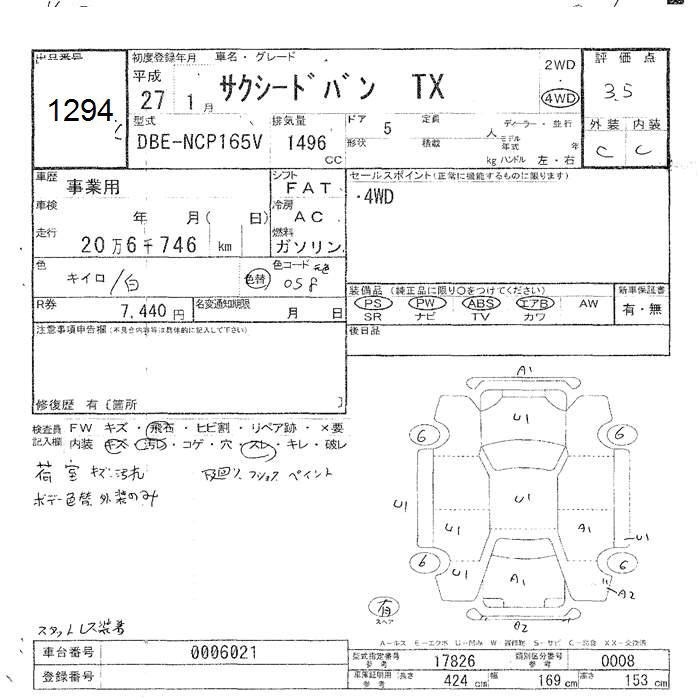 初度登録年月 車名・グレード
平成 27年 1月
サクシードバン TX
2WD ・ 4WD
評価点
3.5
外装 内装
C C
1294
型式
DBE-NCP165V
排気量
1496 CC
ドア 5 定員 人
形状 積載 kg
ディーラー・並行
モデル年式 年
ハンドル 左・右
車歴 事業用
シフト FAT
セールスポイント(正常に機能するものに限ります)
・4WD
車検 年 月( 日)
冷房 AC
走行 20万6千746 km
燃料 ガソリン
色 キイロ/白 色替
色コード 元色 058
装備品 (純正品に限り○をつけてください)
PS PW ABS エアB AW
SR ナビ TV カワ
新車保証書
有・無
R券 7,440円
名変通知期限 月 日
注意事項申告欄(不具合内容等は具体的に記入して下さい)
後日品
修復歴 有〔箇所 〕
検査員記入欄
FW キズ・飛石・ヒビ割・リペア跡・×要
内装 キズ・汚レ・コゲ・穴・スレ・キレ・破レ
荷室キズ・汚れ
下廻り、フショク ペイント
ボデー色替 外装のみ
A1
U1
6 6
U1
U1
U1 A1
U1
6 6
U1 A1
A2
有
スペア
A2
スタットレス装着
A-ルス E-エクボ U-凹み W-補修跡 S-サビ C-腐食 XX-交換済
車台番号 0006021
型式指定番号 参考 17826
類別区分番号 参考 0008
登録番号
車庫証明用 参考 長さ 424 cm 幅 169 cm 高さ 153 cm